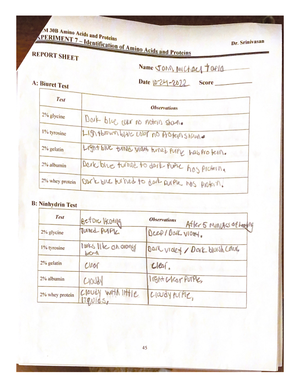 30B Amino Acids and Proteins
EXPERIMENT 7 – Identification of Amino Acids and Proteins
Dr. Srinivasan
REPORT SHEET
Name John Michael
Date 11-29-2022 Score
A: Biuret Test
Test Observations
2% glycine Dark blue color no protein shown.
1% tyrosine Light brown blue color no protein shown.
2% gelatin Light blue turns violet has protein.
2% albumin Dark blue turned to dark purple has protein.
2% whey protein Dark blue turned to dark purple has protein.
B: Ninhydrin Test
Test Observations
Before heating After 5 minutes of heating
2% glycine purple Deep/Dark violet.
1% tyrosine looks like an
Dark violet / Dark bluish
2% gelatin clear clear.
2% albumin cloudy light clear purple,
2% whey protein cloudy with little
liquids, cloudy purple,